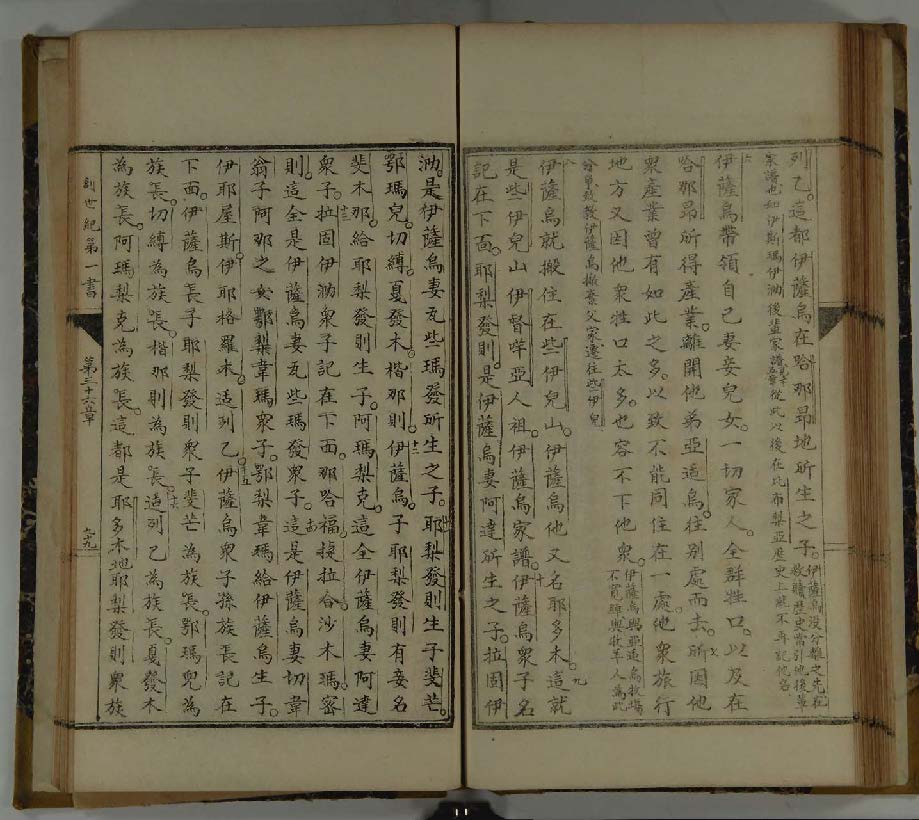 列乙。這都伊薩烏在哈那昂地所生之子。伊薩烏沒分離之先在
家譜也如伊斯瑪伊泐後輩家譜
從此以後在比布梨亞歷史上然不再記他名
伊薩烏帶領自己妻妾兒女。一切家人。全群牲口。以及在
哈那昂所得產業。離開他弟亞适烏。往別處而去。所因他
衆產業曾有如此之多。以致不能同住在一處。他衆旅行
地方又因他衆牲口太多。也容不下他衆。伊薩烏與亞适烏牧場
不寬雖與牧羊人為此
伊薩烏就搬住在些伊兒山。伊薩烏他又名耶多木。這就
是些伊兒山伊督咩亞人祖。伊薩烏家譜。伊薩烏衆子名
記在下面。耶梨發則。是伊薩烏妻阿達所生之子。拉固伊
泐。是伊薩烏妻瓦些瑪發所生之子。耶梨發則生子斐芒。
鄂瑪兒。切縛。戛發木。楷那則。伊薩烏。子耶梨發則有妾名
斐木那。給耶梨發則生子。阿瑪梨克。這全伊薩烏妻阿達
衆子。拉固伊泐衆子記在下面。那哈福。接拉合。沙木瑪。密
則。這全是伊薩烏妻瓦些瑪發衆子。這是伊薩烏妻切韋
翁子阿那之女鄂梨韋瑪衆子。鄂梨韋瑪給伊薩烏生子。
伊耶屋斯。伊耶格羅木。适列乙。伊薩烏衆子孫族長記在
下面。伊薩烏長子耶梨發則衆子斐芒為族長。鄂瑪兒為
族長。切縛為族長。楷那則為族長。适列乙為族長。戛發木
為族長。阿瑪梨克為族長。這都是耶多木地耶梨發則衆族
創世紀第一書
第三十六章
六九